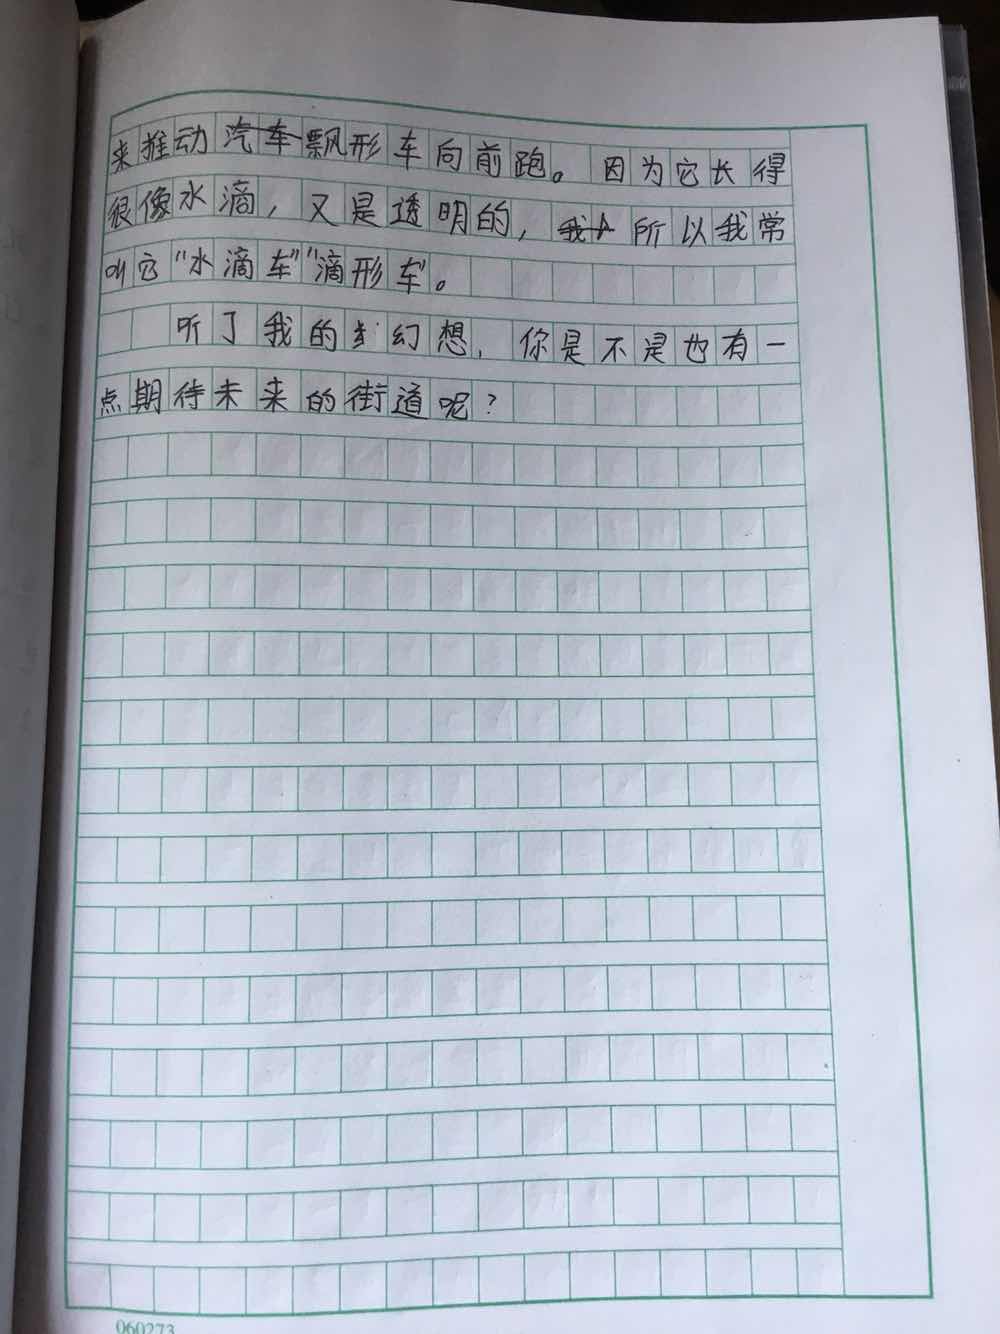 来推动汽车飘形车向前跑。因为它长得
很像水滴，又是透明的，我所以我常
叫它“水滴车”“滴形车”。
听了我的幻想，你是不是也有一
点期待未来的街道呢？
060273